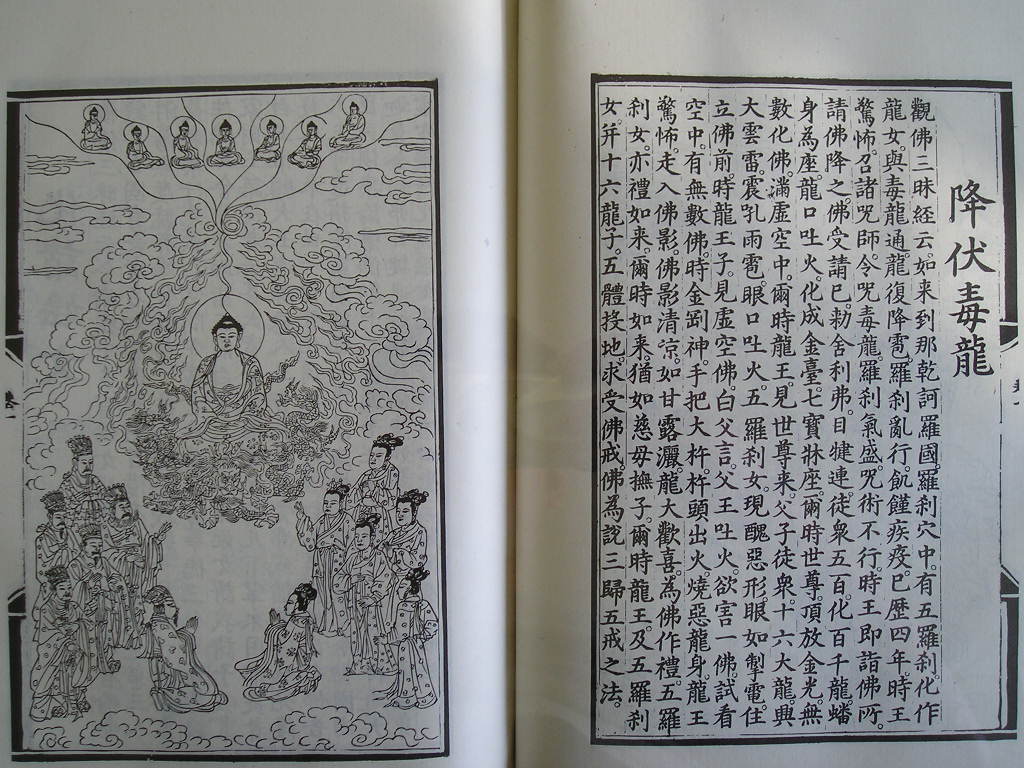 降伏毒龍
觀佛三昧経云。如来到那乾訶羅國。羅刹穴中。有五羅刹。化作
龍女。與毒龍通。龍復降雹。羅刹亂行。飢饉疾疫。已歴四年。時王
驚怖。召諸咒師。令咒毒龍。羅刹氣盛。咒術不行。時王即詣佛所。
請佛降之。佛受請已。勅舍利弗。目犍連。徒衆五百。化百千龍。蟠
身為座。龍口吐火。化成金臺。七寳牀座。爾時世尊。頂放金光。無
數化佛。滿虚空中。爾時龍王。見世尊来。父子徒衆。十六大龍。興
大雲雷。震吼雨雹。眼口吐火。五羅刹女。現醜惡形。眼如掣電。住
立佛前。時龍王子。見虚空佛。白父言。父王吐火。欲害一佛。試看
空中。有無數佛。時金剛神。手把大杵。杵頭出火。燒惡龍身。龍王
驚怖。走入佛影。佛影清凉。如甘露灑。龍大歡喜。為佛作禮。五羅
刹女。亦禮如来。爾時如来。猶如慈母撫子。爾時龍王。及五羅刹
女。并十六龍子。五體投地。求受佛戒。佛為說三歸五戒之法。